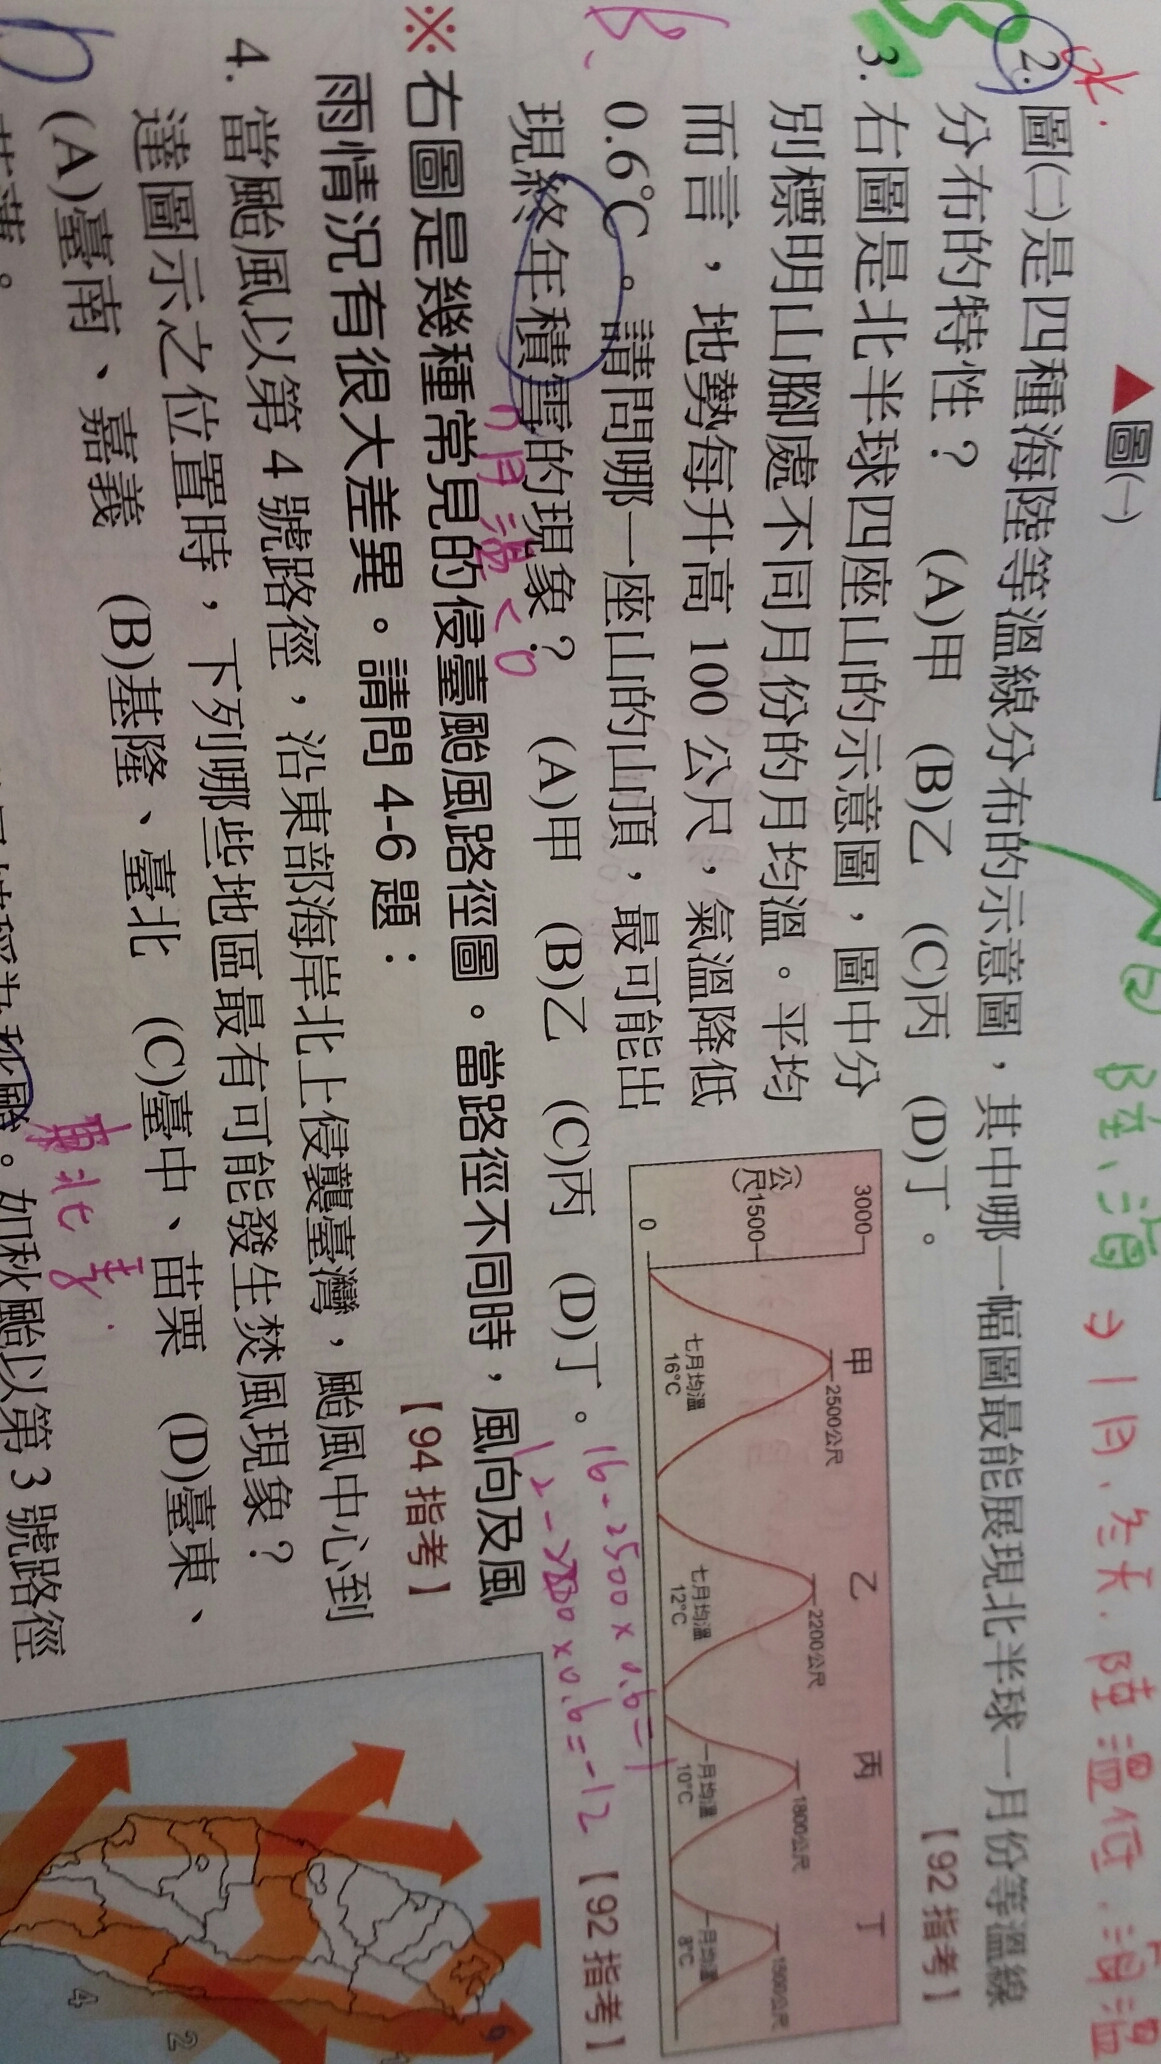 ▲圖㈠
⇒1月、冬天、陸溫低、海溫
2. 圖㈡是四種海陸等溫線分布的示意圖，其中哪一幅圖最能展現北半球一月份等溫線
分布的特性？　(A)甲　(B)乙　(C)丙　(D)丁。
【92 指考】
3. 右圖是北半球四座山的示意圖，圖中分
別標明山腳處不同月份的月均溫。平均
而言，地勢每升高 100 公尺，氣溫降低
0.6℃。請問哪一座山的山頂，最可能出
現終年積雪的現象？　(A)甲　(B)乙　(C)丙　(D)丁。
【92 指考】
B.
月溫<0
16-2500×0.6=1
12-2200×0.6=-12
甲　乙　丙　丁
3000
公尺
1500
0
2500公尺
2200公尺
1800公尺
1500公尺
七月均溫
16℃
七月均溫
12℃
一月均溫
10℃
一月均溫
8℃
※右圖是幾種常見的侵臺颱風路徑圖。當路徑不同時，風向及風
雨情況有很大差異。請問 4-6 題：
【94 指考】
4. 當颱風以第 4 號路徑，沿東部海岸北上侵襲臺灣，颱風中心到
達圖示之位置時，下列哪些地區最有可能發生焚風現象？
(A)臺南、嘉義　(B)基隆、臺北　(C)臺中、苗栗　(D)臺東、
東北季
秋颱。如秋颱以第 3 號路徑
4
2
6
1